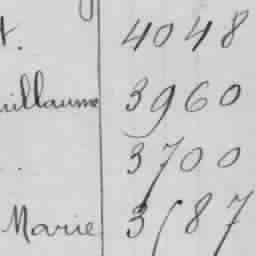 t. 4048
uillaume 3960
. 3700
Marie 3587